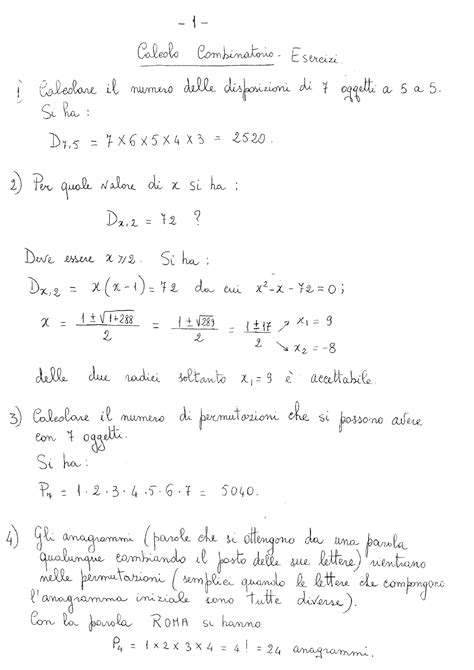 - 1 -
Calcolo Combinatorio. Esercizi
1) Calcolare il numero delle disposizioni di 7 oggetti a 5 a 5.
Si ha :
D7,5 = 7×6×5×4×3 = 2520.
2) Per quale valore di x si ha :
Dx,2 = 72 ?
Deve essere x ≥ 2. Si ha :
Dx,2 = x(x-1) = 72 da cui x²-x-72=0;
x = 1±√1+288 / 2 = 1±√289 / 2 = 1±17 / 2 ↗ x1 = 9
↘ x2 = -8
delle due radici soltanto x1=9 è accettabile
3) Calcolare il numero di permutazioni che si possono avere
con 7 oggetti.
Si ha :
P7 = 1·2·3·4·5·6·7 = 5040.
4) Gli anagrammi (parole che si ottengono da una parola
qualunque cambiando il posto delle sue lettere) rientrano
nelle permutazioni (semplici quando le lettere che compongono
l'anagramma iniziale sono tutte diverse).
Con la parola ROMA si hanno
P4 = 1×2×3×4 = 4! = 24 anagrammi.